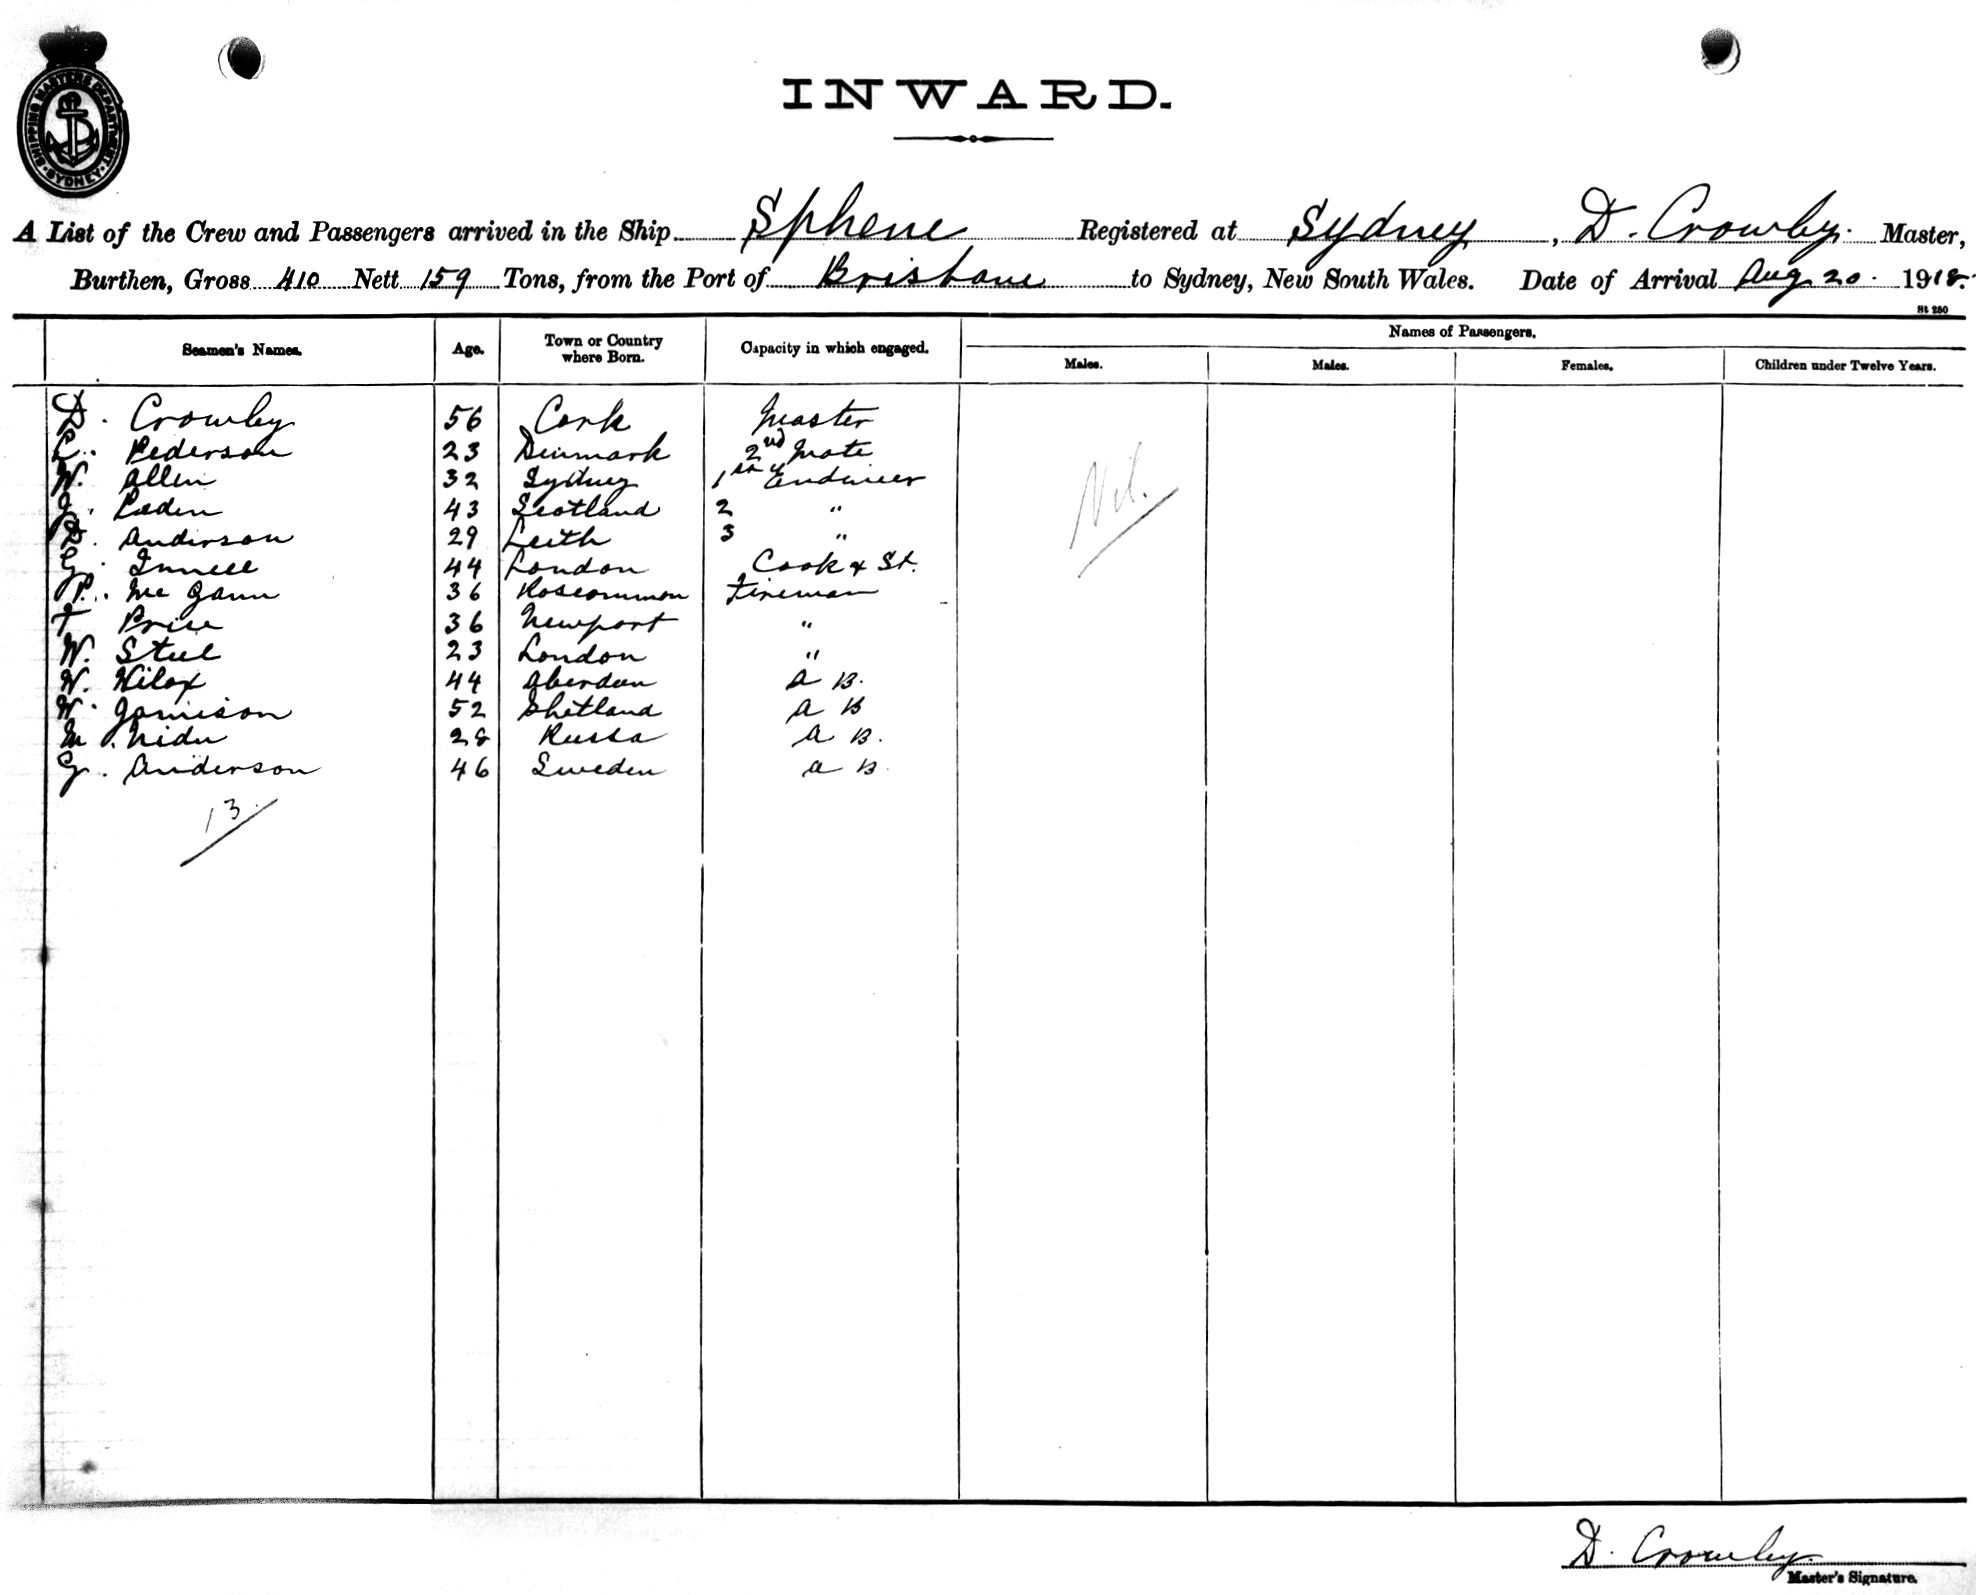 SHIPPING MASTERS DEPARTMENT
SYDNEY
INWARD.
A List of the Crew and Passengers arrived in the Ship Sphene Registered at Sydney, D. Crowley. Master,
Burthen, Gross 410 Nett 159 Tons, from the Port of Brisbane to Sydney, New South Wales. Date of Arrival Aug 20. 1918.
St 250
Names of Passengers.
Seamen's Names. Age. Town or Country where Born. Capacity in which engaged. Males. Males. Females. Children under Twelve Years.
D. Crowley 56 Cork Master
Pederson 23 Denmark 2nd Mate
W. Allen 32 Sydney 1st Endineer
J. Paden 43 Scotland 2 "
D. Anderson 29 Leith 3 "
G. 44 London Cook & St.
P. Mc Gann 36 Roscommon Fireman
T Price 36 Newport "
W. Steel 23 London "
W. Wilox 44 Aberdeen A B.
W. Jamison 52 Shetland A B
M. Nider 28 Russa A B.
G. Anderson 46 Sweden A B.
Nil.
13.
D. Crowley
Master's Signature.